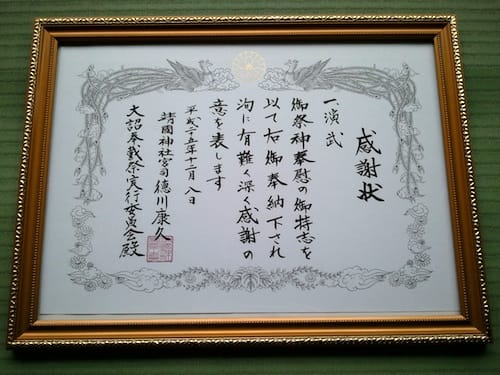 感謝状
一、演武
御祭神奉慰の御特志を
以て右御奉納下され
洵に有難く深く感謝の
意を表します
平成二十五年十二月八日
靖國神社宮司 德川康久
大詔奉戴祭実行委員会殿